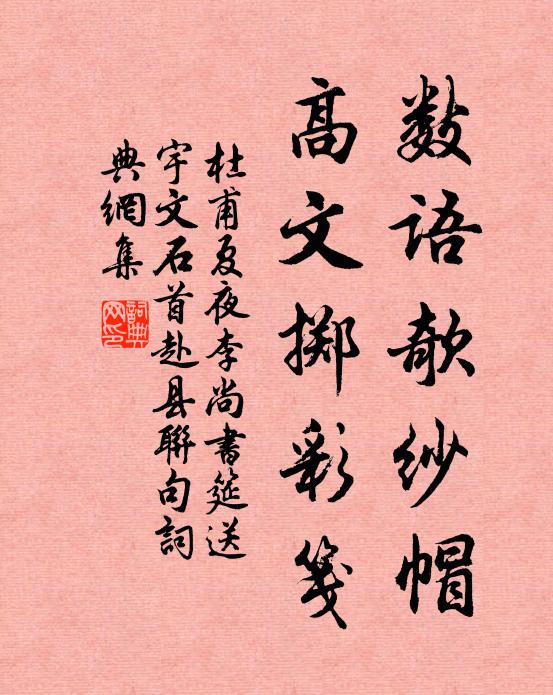 数语欹纱帽
高文掷彩笺
杜甫夏夜李尚書筵送
宇文石首赴县聯句詞
典網集
詞典网印